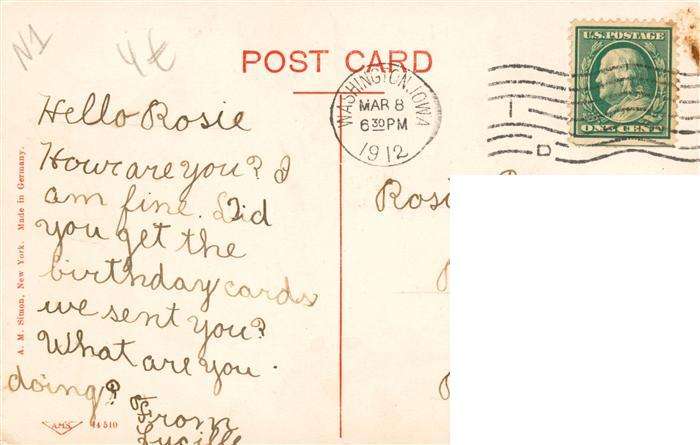 N1
4¢
POST CARD
U.S. POSTAGE
ONE CENT
WASHINGTON, IOWA
MAR 8
6 30 PM
1912
Hello Rosie
How are you? I
am fine. Did
you get the
birthday cards
we sent you?
What are you
doing?
From
Lucille
A. M. Simon, New York. Made in Germany.
AMS 44510